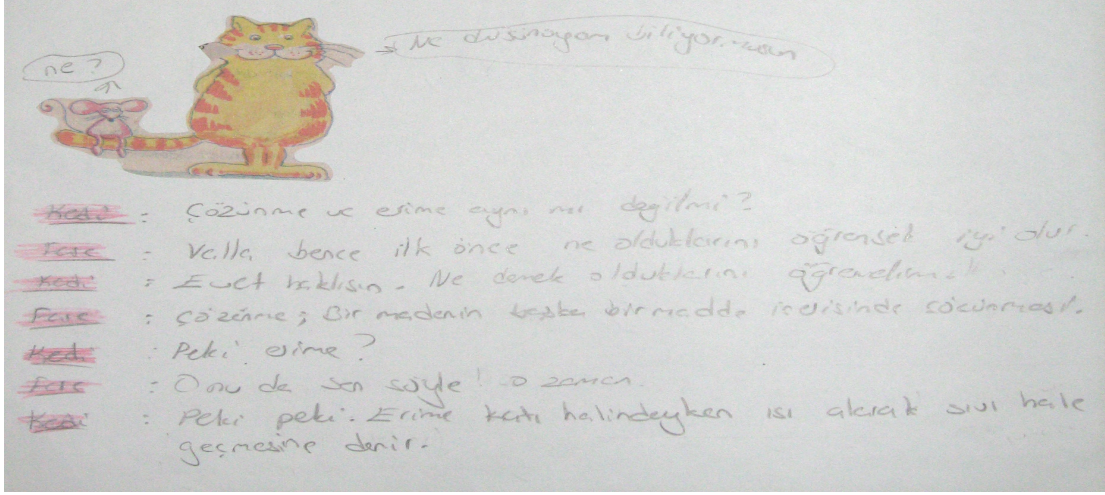 Ne düşünüyom biliyormusun
ne?
Kedi : Çözünme ve erime aynı mı değilmi?
Fare : Valla bence ilk önce ne olduklarını öğrensek iyi olur.
Kedi : Evet haklısın. Ne demek olduklarını öğrenelim
Fare : çözünme; Bir maddenin başka bir madde içerisinde
Kedi : Peki erime?
Fare : Onu da sen söyle! O zaman.
Kedi : Peki peki. Erime katı halindeyken ısı alarak sıvı hale
geçmesine denir.